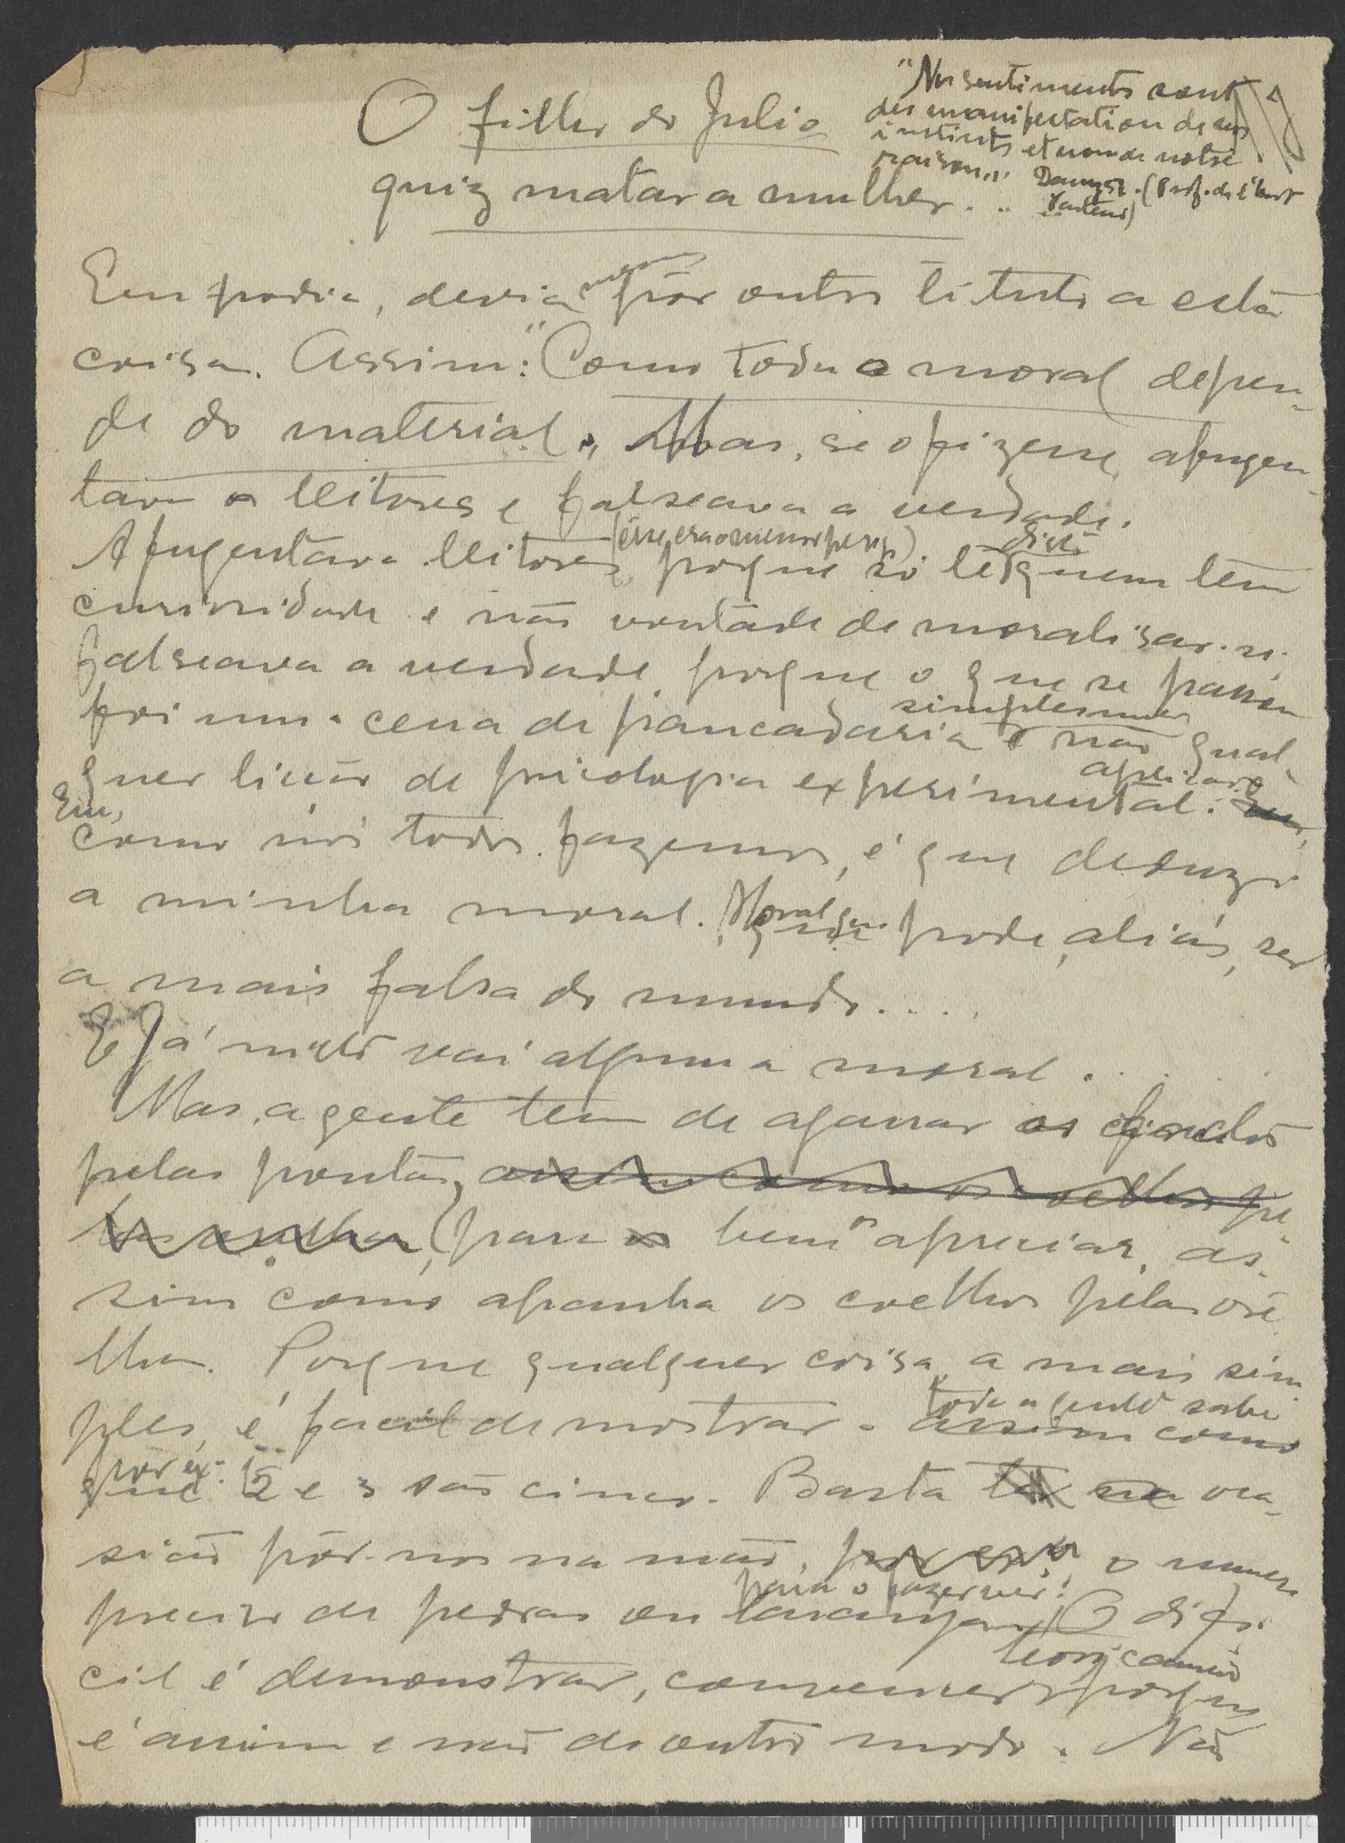 O filho do Julio
quiz matar a mulher...
"Nos sentiments sont
des manifestation de nos
instincts et non de notre
raison". (Prof. de l'Inst
Pasteur)
Eu podia, devia mesmo pôr outro titulo a esta
coisa. Assim: "Como todo o moral depen-
de do material". Mas, se o fizesse, afugen-
tava os leitores e falseava a verdade.
Afugentava leitores (esse era o menor perigo) porque só lê disto quem tem
curiosidade e não vontade de moralisar-se.
Falseava a verdade porque o que se passou
foi uma cena de pancadaria simplesmente e não qual-
quer lição de psicologia experimental aplicada.
Eu, como nós todos fazemos, é que deduzi
a minha moral. Moral que pode, aliás, ser
a mais falsa do mundo.....
E já nisto vai alguma moral......
Mas, a gente tem de agarrar os
pelas pontas, assim como os coelhos pe-
las orelhas, para bem os apreciar, as-
sim como apanha os coelhos pelas ore-
lhas. Porque qualquer coisa, a mais sim-
ples, é facil demostrar. assim como toda a gente sabe
que por ex: 2 e 3 são cinco. Basta oca-
sião pôr-nos na mão, por ex: o numero
preciso de pedras ou laranjas para o fazer ver! O difi-
cil é demonstrar, convencer teoricamente porque
é assim e não de outro modo. Não